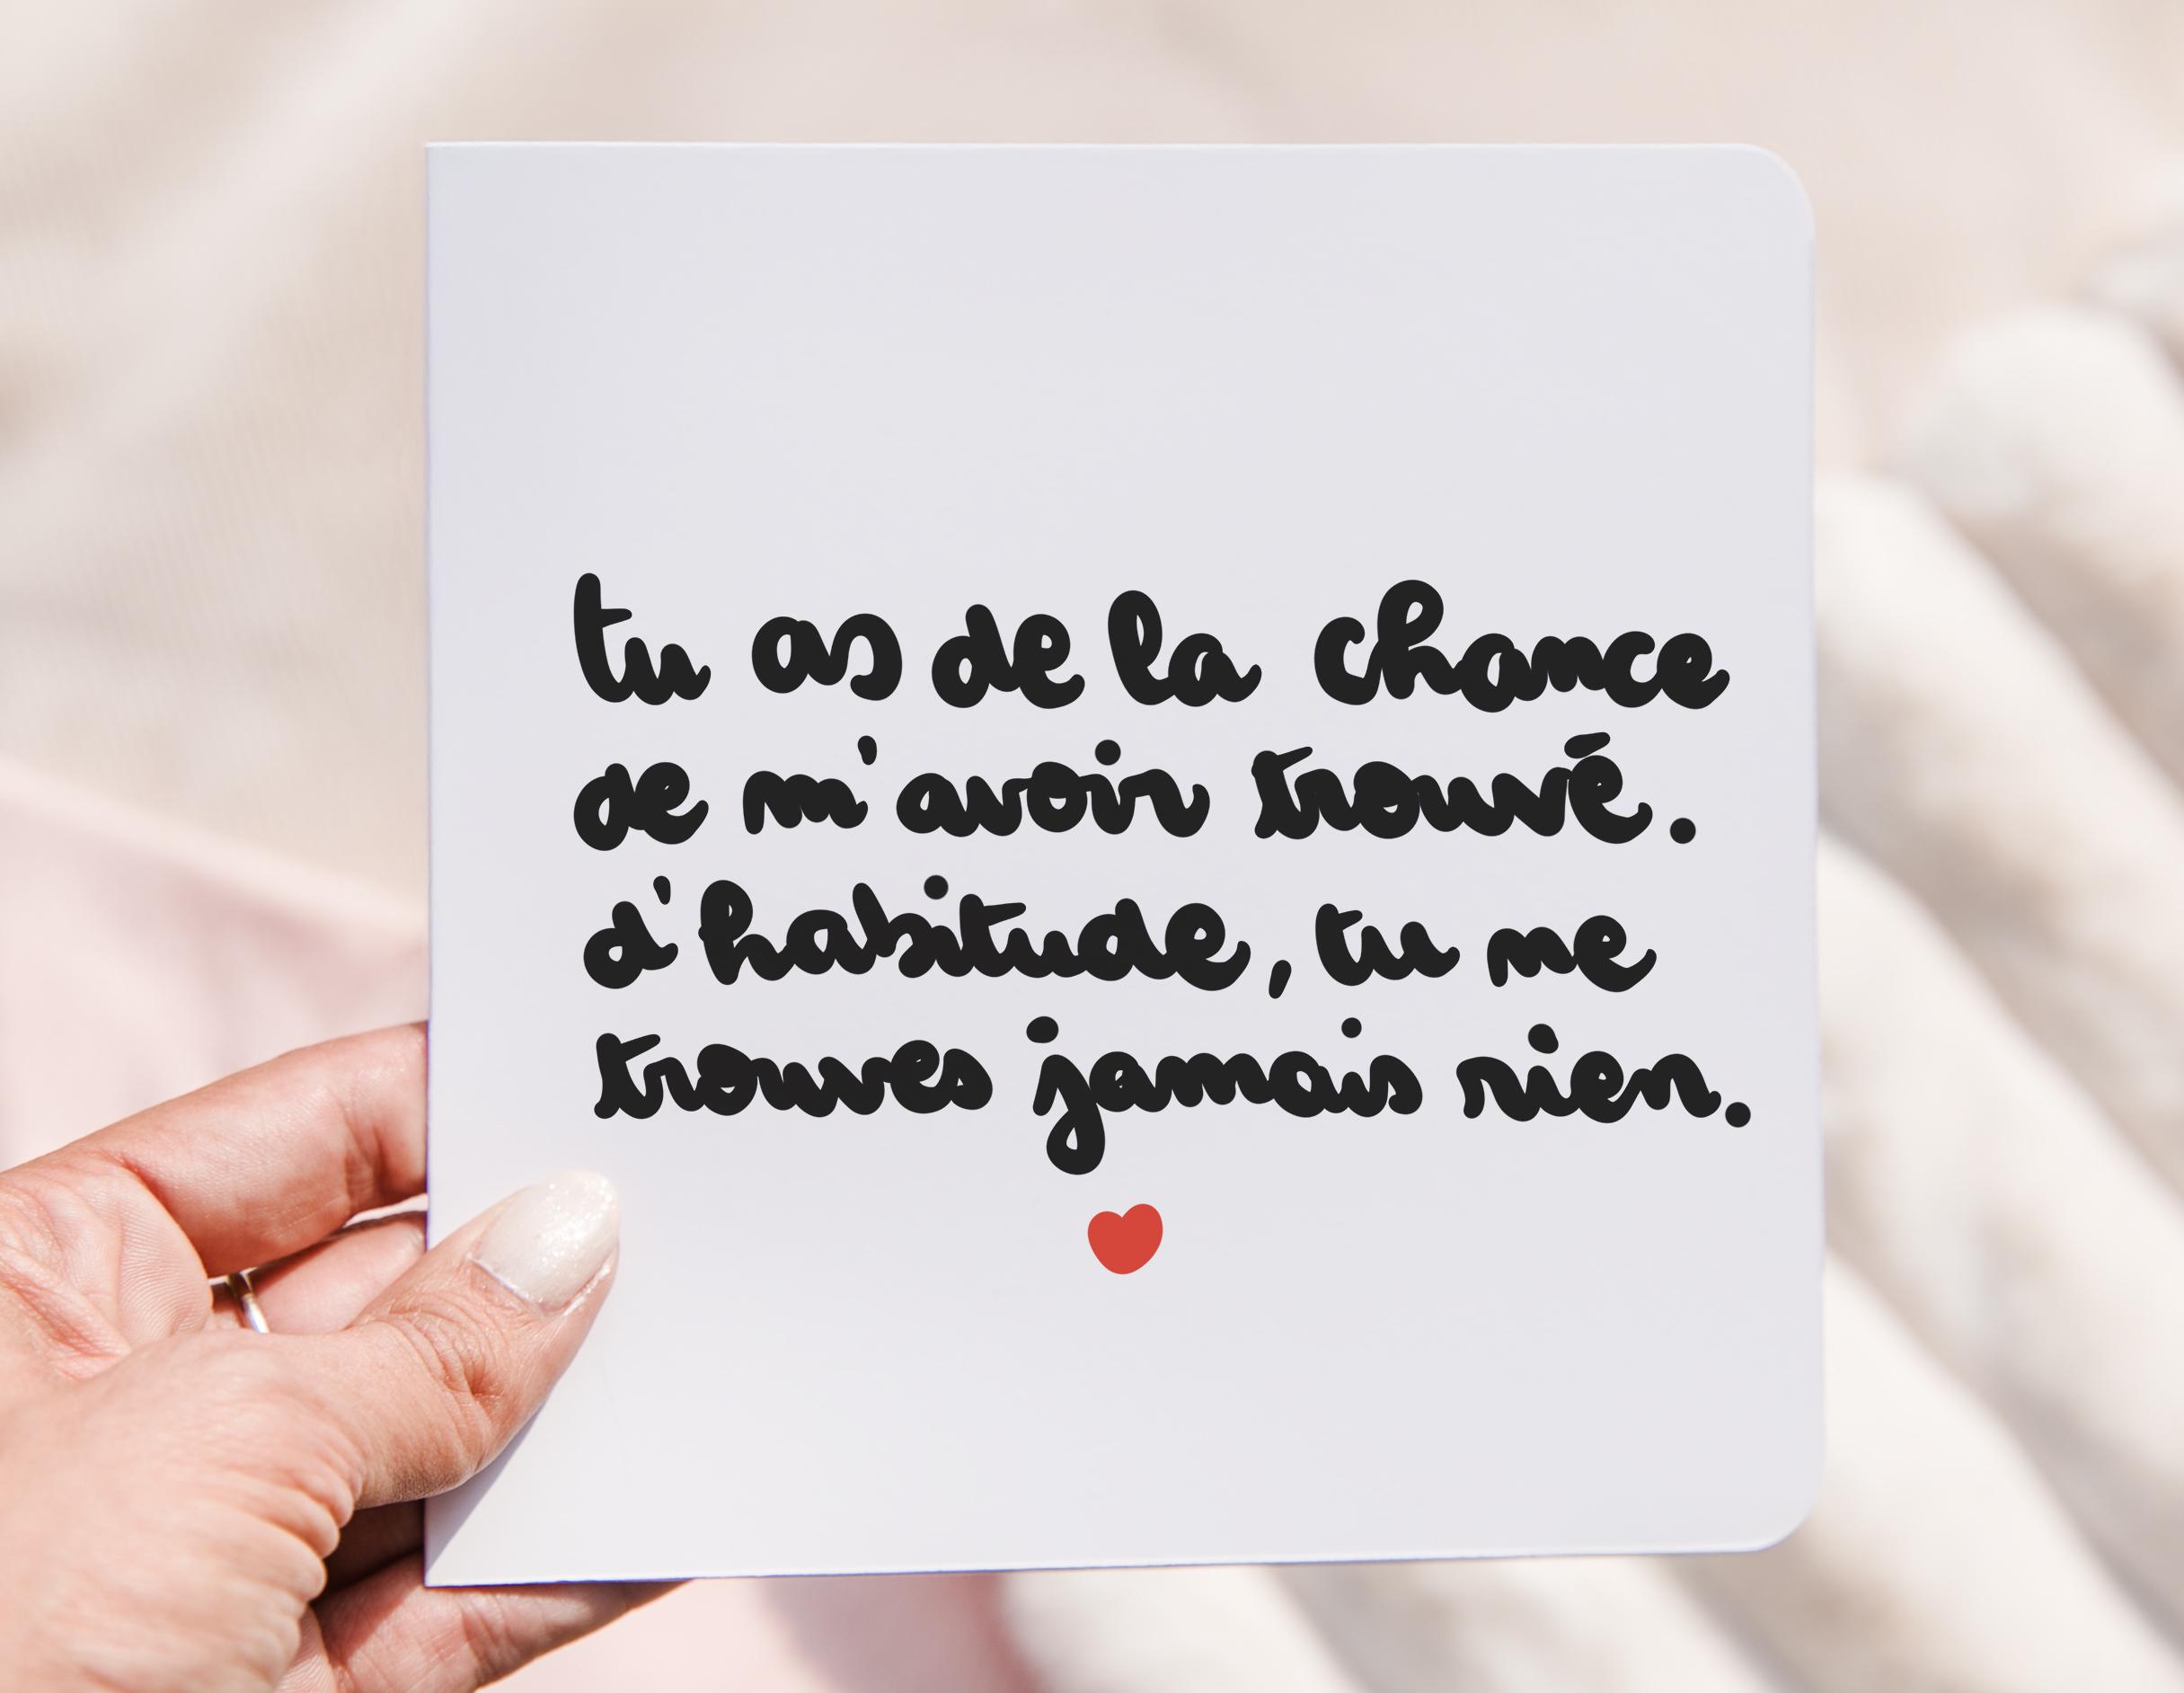 tu as de la chance
de m'avoir trouvé.
d'habitude, tu me
trouves jamais rien.